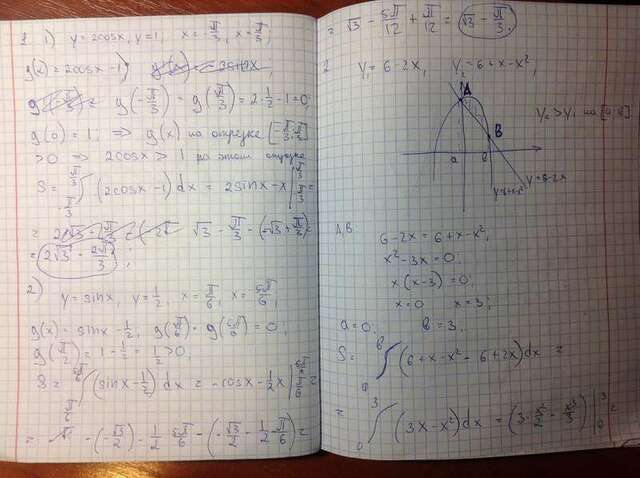 1 1) y=2cosx, y=1, x=-π/3, x=π/3;
g(x)=2cosx-1;
g(-π/3)=g(π/3)=2·1/2-1=0;
g(0)=1; ⇒ g(x) на отрезке [-π/3;π/3]
>0 ⇒ 2cosx>1 на этом отрезке
S=∫_{-π/3}^{π/3}(2cosx-1)dx=2sinx-x|_{-π/3}^{π/3}=
= √3-π/3-(-√3+π/3)=
=2√3-2π/3;
2) y=sinx, y=1/2, x=π/6, x=5π/6;
g(x)=sinx-1/2, g(π/6)=g(5π/6)=0;
g(π/2)=1-1/2=1/2>0;
S=∫_{π/6}^{5π/6}(sinx-1/2)dx=-cosx-1/2x|_{π/6}^{5π/6}=
= -(-√3/2)-1/2·5π/6-(-√3/2-1/2·π/6)=
=√3-5π/12+π/12=√3-π/3.
2 y₁=6-2x, y₂=6+x-x²;
A
B
y₂>y₁ на [a;b]
a b
y=6-2x
y=6+x-x²
A,B:
6-2x=6+x-x²;
x²-3x=0;
x(x-3)=0;
x=0 x=3;
a=0; b=3.
S=∫_{a}^{b}(6+x-x²-6+2x)dx=
=∫_{0}^{3}(3x-x²)dx=(3·x²/2-x³/3)|_{0}^{3}=